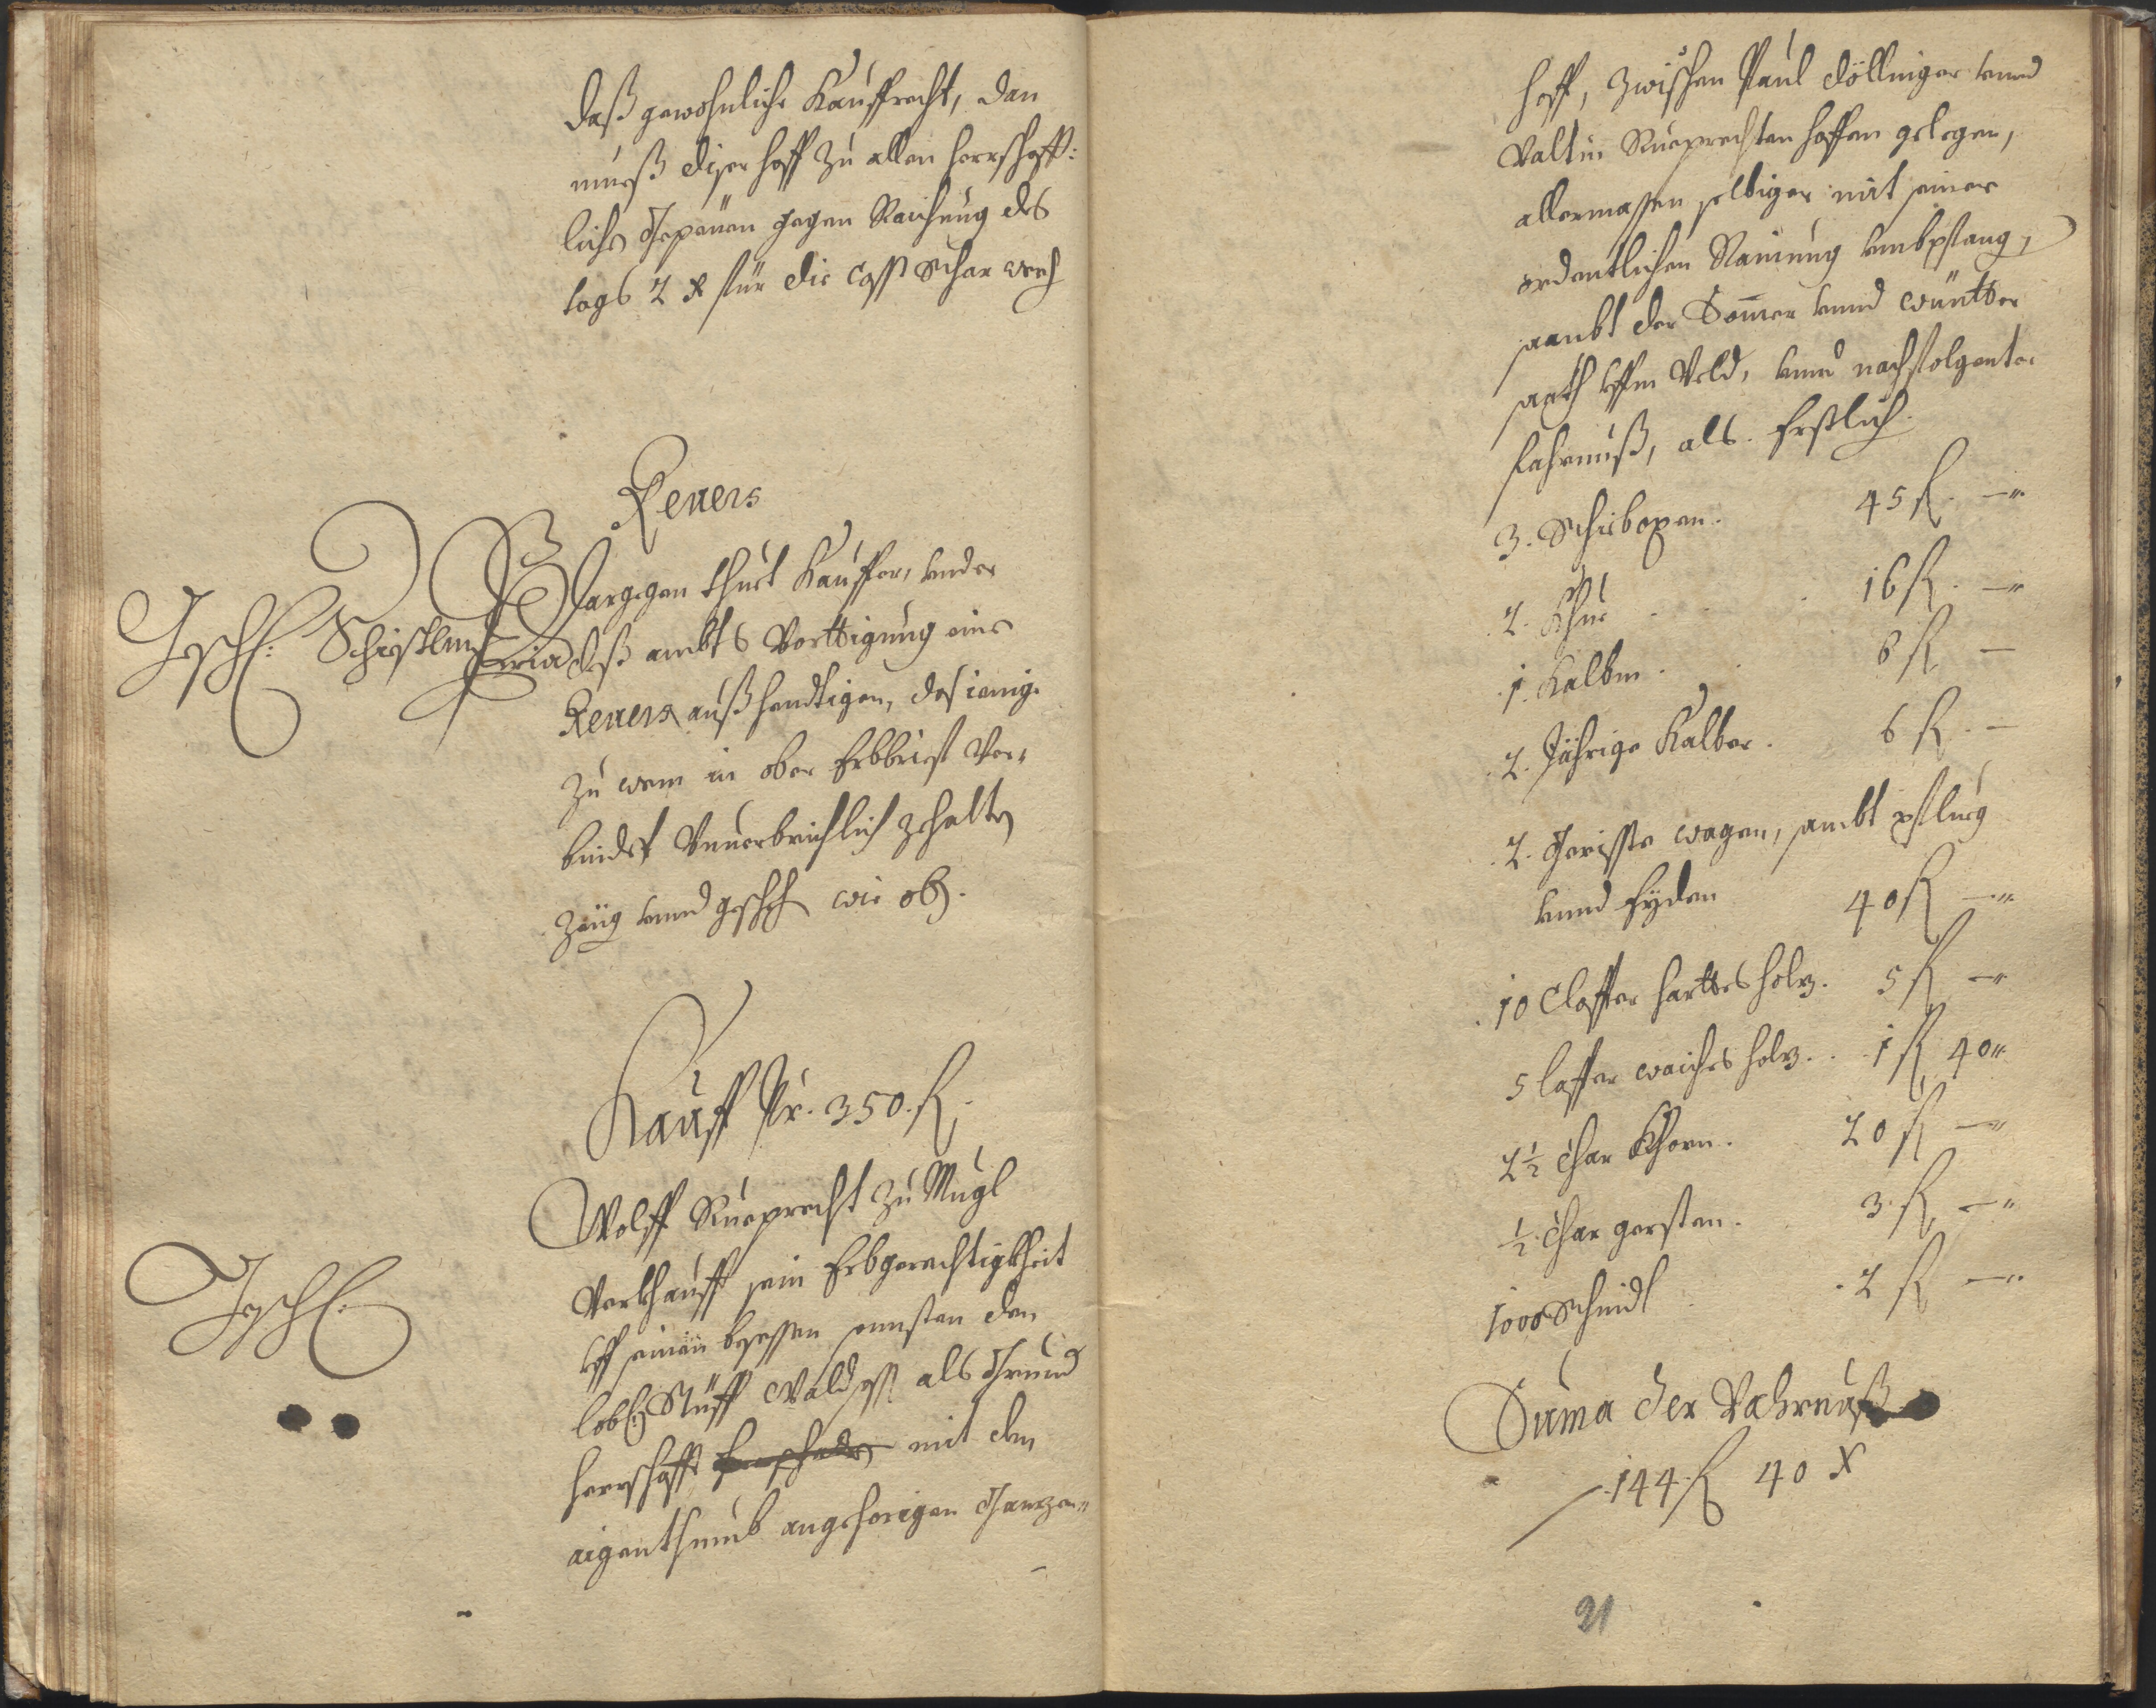 daß gewohnliche Kauffrecht, dan
mueß diser hoff zu allen herrschafft:
lichen Gepeuen gegen Raichung des
tags 2 x für die Cosst Scharwerch
Reuers
Gschl: Schrifftlich
Dargegen thuet Kauffer, vnder
deß ambts Vorttigung eine
Reuers außhendtigen, das ienige
zu wem in ober Erbbrief Ver-
bindet Vnuerbrichlich zehalten
Zeüg vnnd gschehen wie ob.
Kauff Pr. 350. fl.
Gschl.
Wolff Rueprecht zu Mugl
Verkhaufft sein Erbgerechtigkheit
vff seinen besessen sonsten dem
lobl: Stüfft Waldsass als Grund
herrschafft mit dem
aigenthumb angehorigen Ganzen
hoff, zwischen Paul Döllinger vnnd
Valtin Rueprechten hoffen gelegen,
allermassen selbiger mit seiner
ordentlichen Rainung vmbpfang,
sambt der Somer vnnd wüntter
saath vffm Veld, vnnd nachfolgenter
fahrnuß, als. Erstlich.
3. Schiboxen. 45 fl. —"
2. Khüe 16 fl. —"
1. Kalbm. 8 fl —
2. Jährige Kalber. 6 fl. —
2. Geriste wagen, sambt pflueg
vnnd Eyden 40 fl —"
10 Claffter harttes holz. 5 fl —"
5 laffter waiches holz. 1 fl 40"
2½ Char Khorn. 20 fl —"
½ Char gersten. 3. fl. —"
1000 Schindl 2 fl —"
Suma der Vahrnuß
144 fl 40 x
21